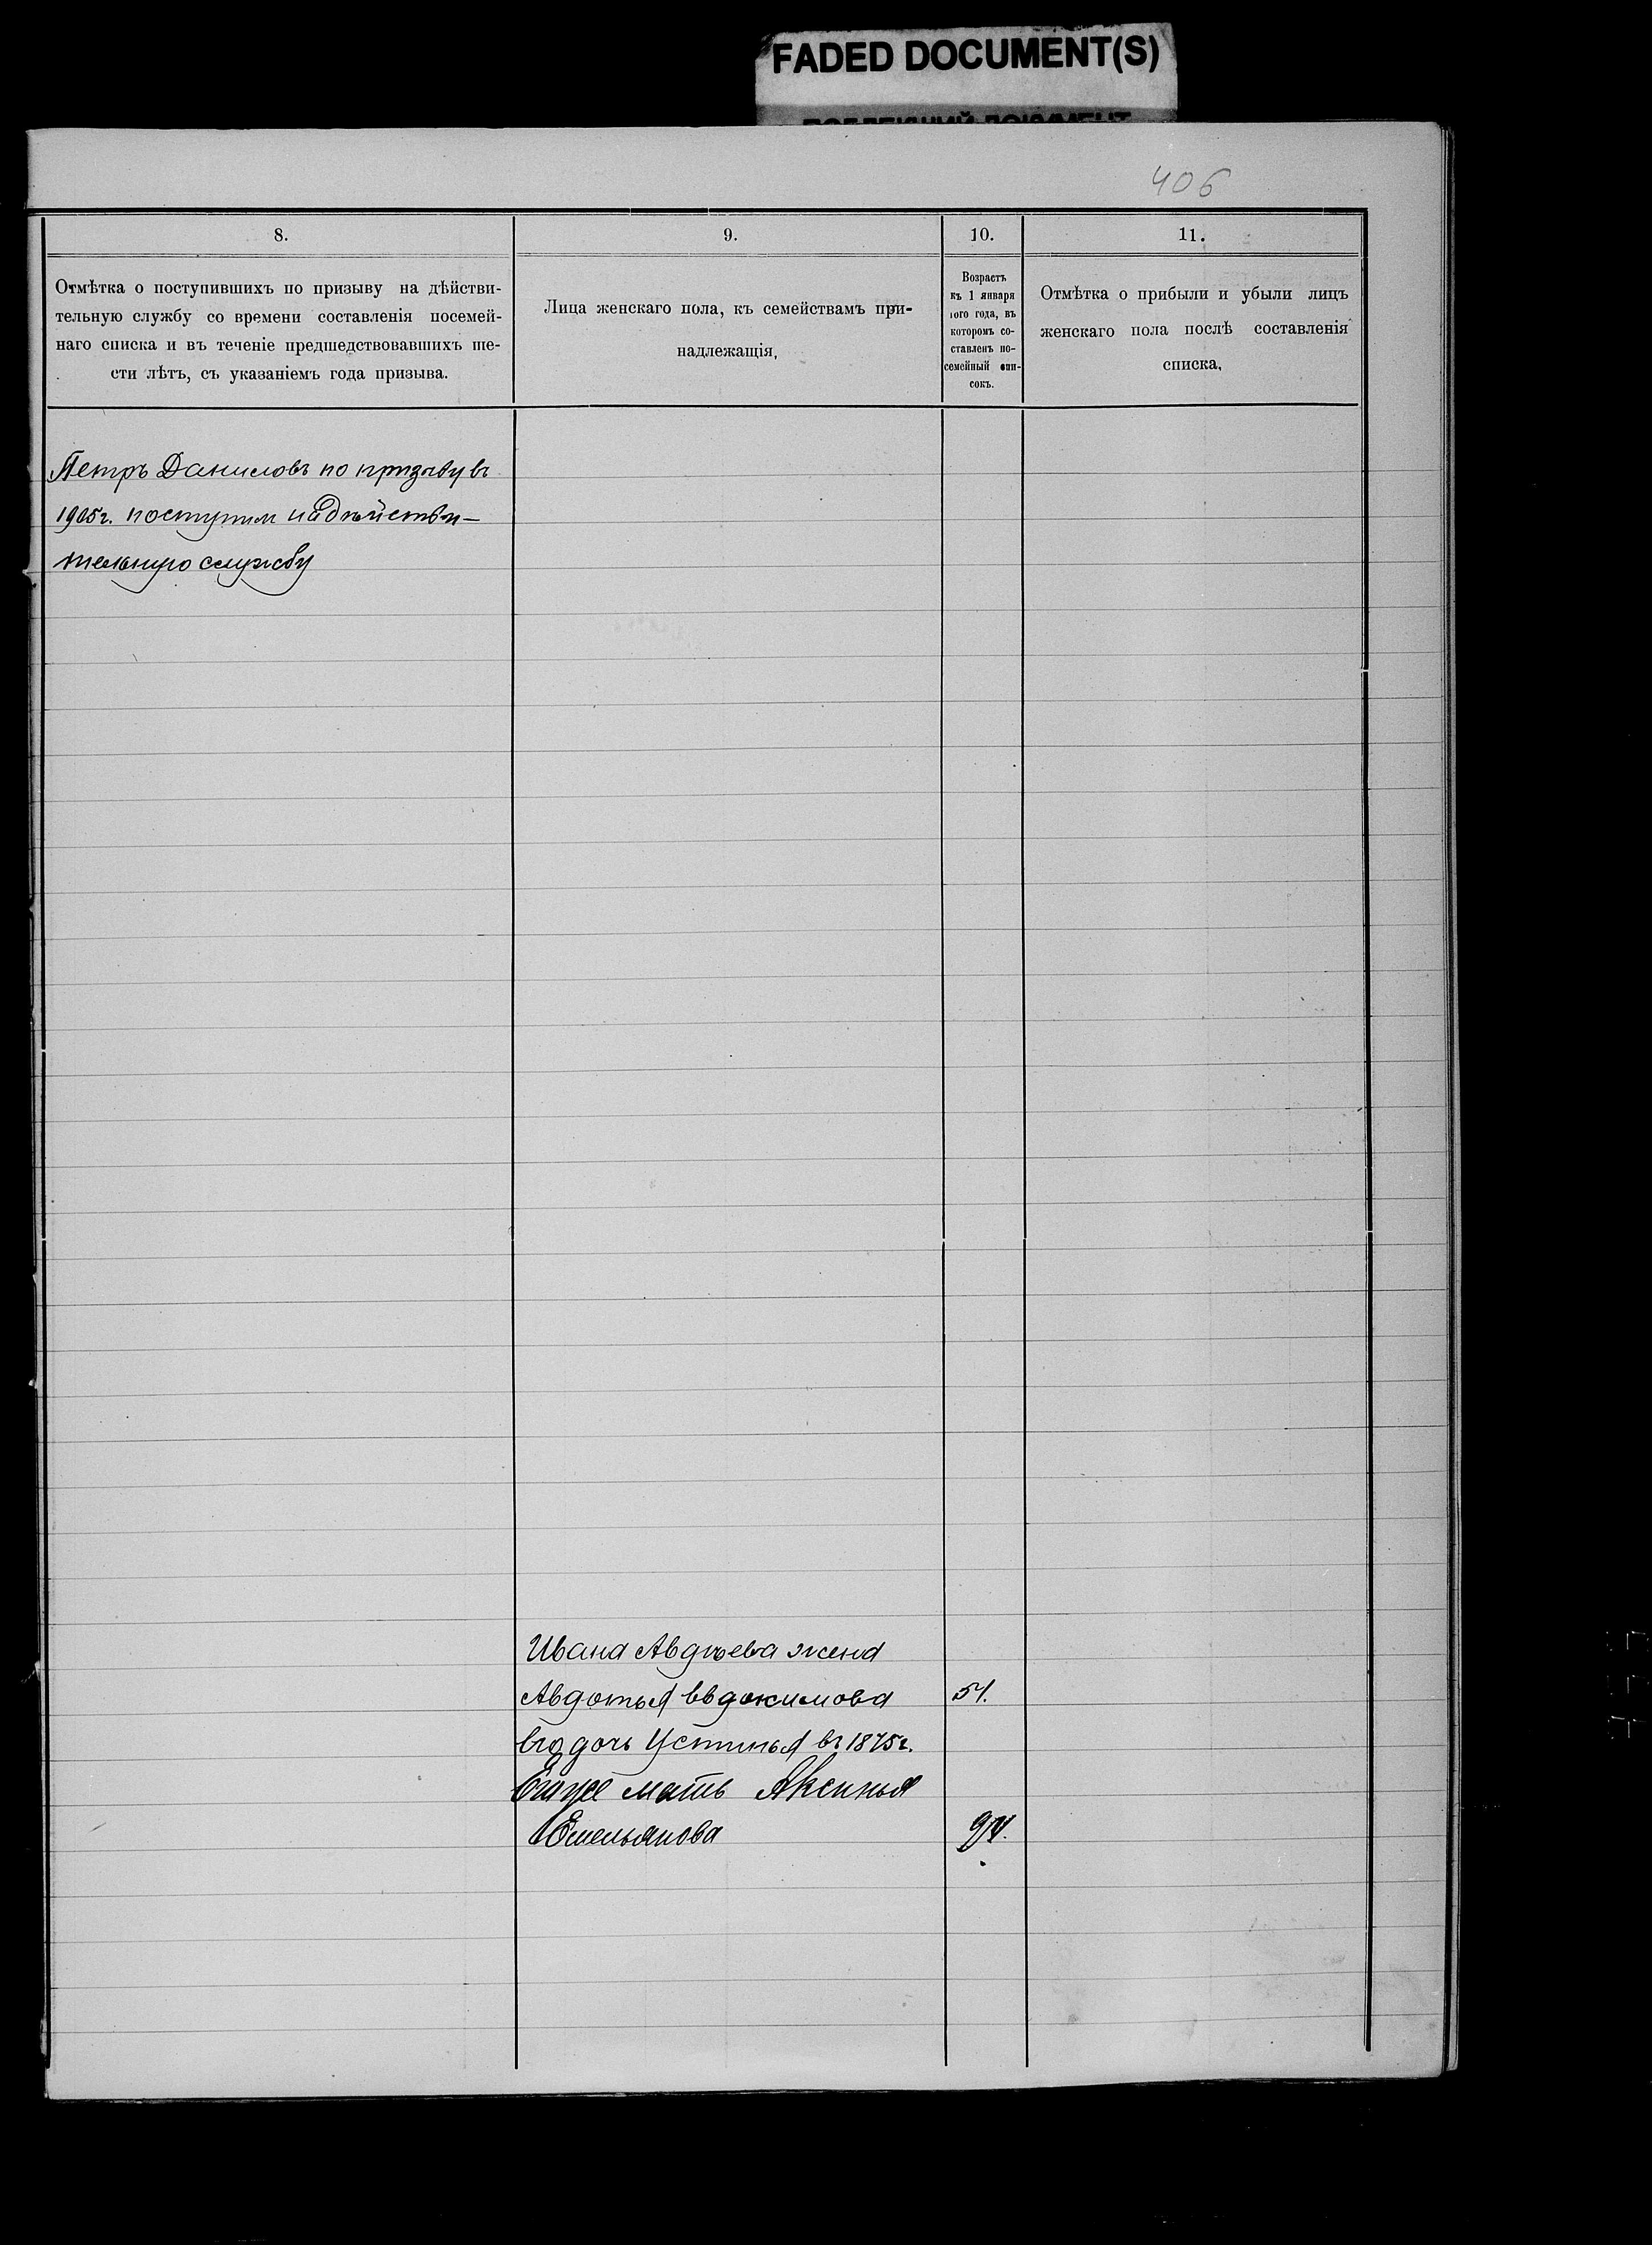 FADED DOCUMENT(S)
406
8.
9.
10.
11.
Отмѣтка о поступившихъ по призыву на дѣйстви-
тельную службу со времени составленія посемей-
наго списка и въ теченіе предшедствовавшихъ ше-
сти лѣтъ, съ указаніемъ года призыва.
Лица женскаго пола, къ семействамъ при-
надлежащія,
Возрастъ
къ 1 января
того года, въ
которомъ со-
ставленъ по-
семейный спи-
сокъ.
Отмѣтка о прибыли и убыли лицъ
женскаго пола послѣ составленія
списка,
Петръ Даниловъ по призыву въ
1905г. поступил на дѣйстви-
тельную службу
Ивана Авдѣева жена
Авдотья Евдокимова
51.
Его дочь Устинья въ 1875г.
Его же мать Аксинья
Емельянова